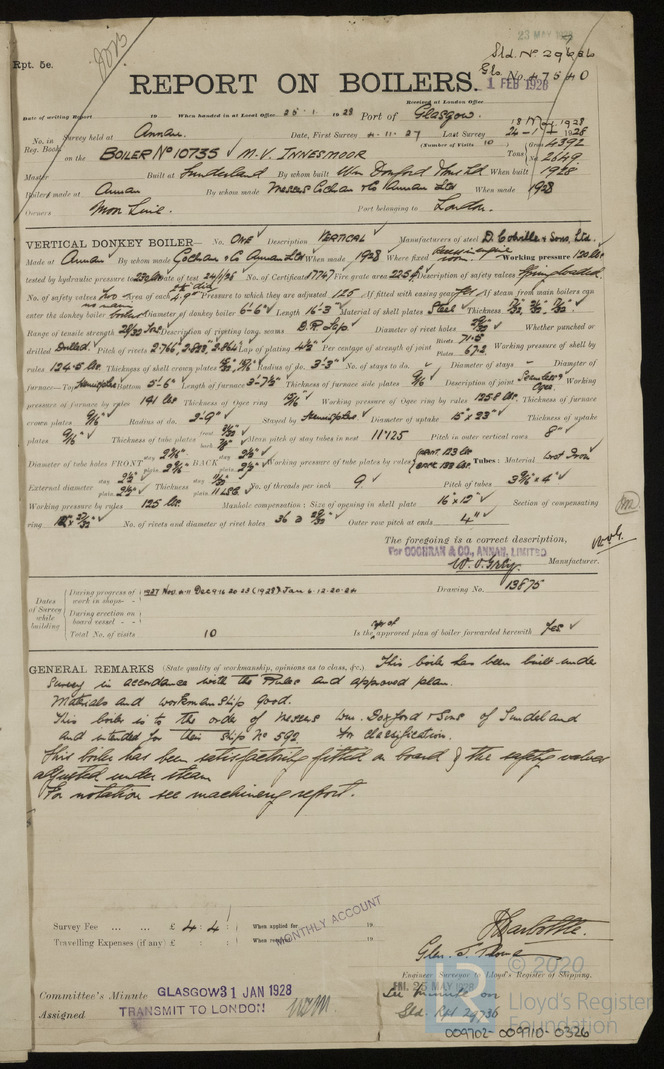 23 MAY 1928
Rpt. 5e.
Sld. No 29686
Gls. No 47540
REPORT ON BOILERS.
1 FEB 1928
Received at London Office
Date of writing Report 19 When handed in at Local Office 25.1.1928 Port of Glasgow.
No. in Survey held at Annan. Date, First Survey 4-11-27 Last Survey 24-1-1928
Reg. Book. (Number of Visits 10) Gross 4392
on the BOILER No 10735 M.V. INNESMOOR Tons Net 2649
Master Built at Sunderland By whom built Wm Doxford & Sons Ltd When built 1928
Boilers made at Annan By whom made Messrs Cochran & Co Annan Ltd When made 1928
Owners Moor Line. Port belonging to London.
VERTICAL DONKEY BOILER— No. ONE Description VERTICAL Manufacturers of steel D. Colville & Sons, Ltd.
Made at Annan By whom made Cochran & Co Annan Ltd When made 1928 Where fixed Working pressure 120 lbs
tested by hydraulic pressure to 230 lbs Date of test 24/1/28 No. of Certificate 17767 Fire grate area Description of safety valves Spring loaded
No. of safety valves two Area of each 4.9" Pressure to which they are adjusted 125 If fitted with easing gear yes If steam from main boilers can
enter the donkey boiler Diameter of donkey boiler 6'-6" Length 16'-3" Material of shell plates Steel Thickness
Range of tensile strength 28/30 Tons Description of riveting long. seams D.R. Lap Diameter of rivet holes Whether punched or
drilled Drilled Pitch of rivets Lap of plating Per centage of strength of joint Rivets 71.5 Plates 67.2 Working pressure of shell by
rules 124.5 lbs Thickness of shell crown plates Radius of do. 3'-3" No. of stays to do. Diameter of stays Diameter of
furnace—Top Hemispher Bottom 5'-6" Length of furnace 3'-7½" Thickness of furnace side plates 9/16 Description of joint Seamless & Ogee. Working
pressure of furnace by rules 191 lbs Thickness of Ogee ring Working pressure of Ogee ring by rules 125.8 lbs Thickness of furnace
crown plates 9/16" Radius of do. 2'-9" Stayed by Hemispher Diameter of uptake 15" x 23" Thickness of uptake
plates 9/16" Thickness of tube plates front back Mean pitch of stay tubes in nest 11.125 Pitch in outer vertical rows 8"
Diameter of tube holes FRONT stay plain BACK stay plain Working pressure of tube plates by rules Tubes: Material Wrot Iron
External diameter stay plain 2½" Thickness stay plain No. of threads per inch 9 Pitch of tubes
Working pressure by rules 125 lbs. Manhole compensation: Size of opening in shell plate 16" x 12" Section of compensating
ring No. of rivets and diameter of rivet holes 36 @ Outer row pitch at ends 4"
The foregoing is a correct description,
For COCHRAN & CO., ANNAN, LIMITED
Manufacturer.
Dates of Survey while building
During progress of work in shops - - 1927 Nov. 4.11 Dec 9.16 20 23 (1928) Jan 6.12.20.24
During erection on board vessel - -
Drawing No. 13875
Total No. of visits 10 Is the copy of approved plan of boiler forwarded herewith Yes
GENERAL REMARKS (State quality of workmanship, opinions as to class, &c.) This boiler has been built under
survey in accordance with the Rules and approved plan.
Materials and workmanship good.
This boiler is to the order of Messrs Wm. Doxford & Sons of Sunderland
and intended for their ship No 592 for classification.
This boiler has been satisfactorily fitted on board & the safety valves
adjusted under steam
For notation see machinery report.
Survey Fee ... ... £ 4 : 4 : When applied for 19
MONTHLY ACCOUNT
Travelling Expenses (if any) £ : : When received 19
Engineer Surveyor to Lloyd's Register of Shipping.
Committee's Minute GLASGOW 31 JAN 1928
FRI. 25 MAY 1928
Assigned TRANSMIT TO LONDON
See minute on
Sld. Rpt 29736
© 2020
Lloyd's Register
Foundation
009702-009710-0326